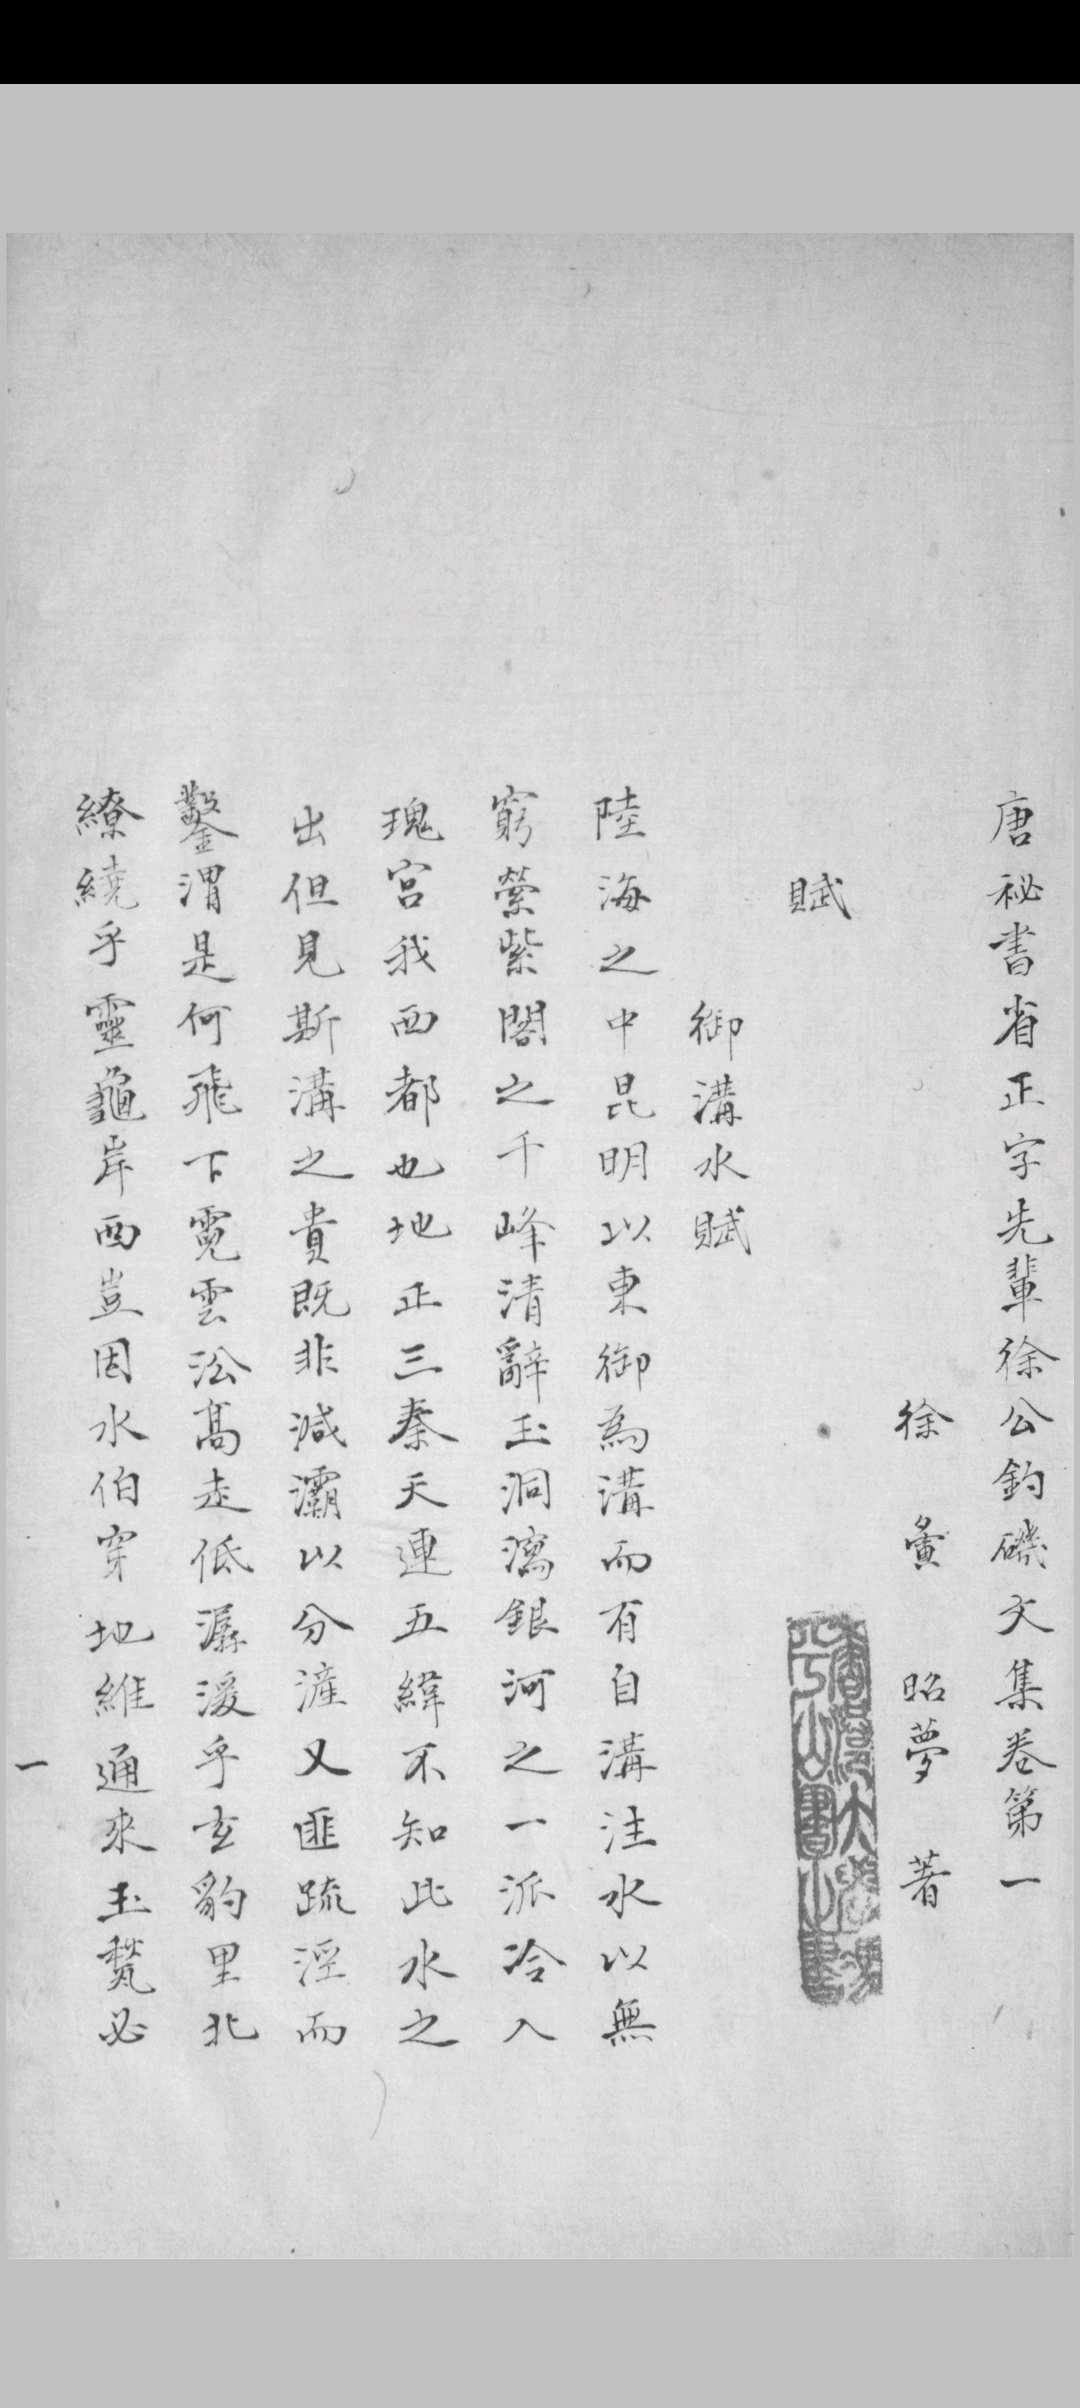 唐祕書省正字先輩徐公釣磯文集卷第一
徐夤昭夢著
賦
御溝水賦
陸海之中昆明以東御為溝而有自溝注水以無
窮縈紫閣之千峰清辭玉洞瀉銀河之一派冷入
瑰宮我西都也地正三秦天連五緯不知此水之
出但見斯溝之貴既非減灞以分滻又匪疏涇而
鑿渭是何飛下霓雲㳂高走低潺湲乎玄豹里北
繚繞乎靈龜岸西豈因水伯穿地維通來玉甃必
一